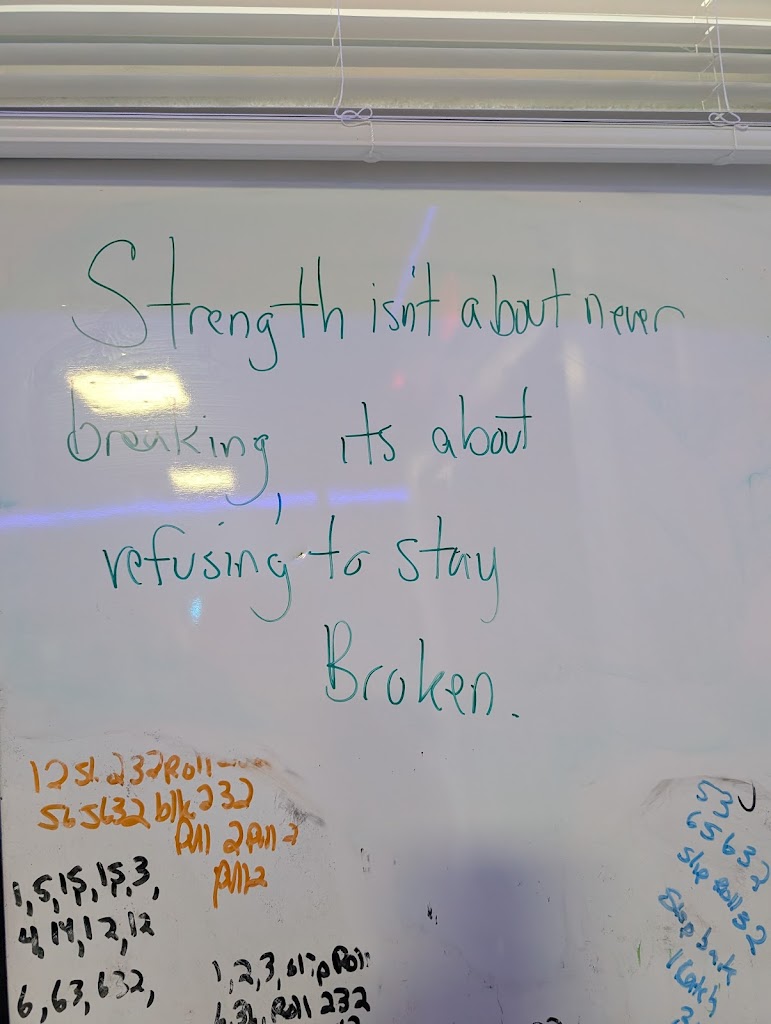 Strength isn't about never
breaking, its about
refusing to stay
Broken.
12 sl 232 Roll
565632 blk 232
Pull 2 Pull 2
Pull 2
1, 5, 15, 15, 3,
4, 14, 12, 12
6, 63, 632,
1, 2, 3, slip Roll
Roll 232
53
65632
slip Roll 32
Step back